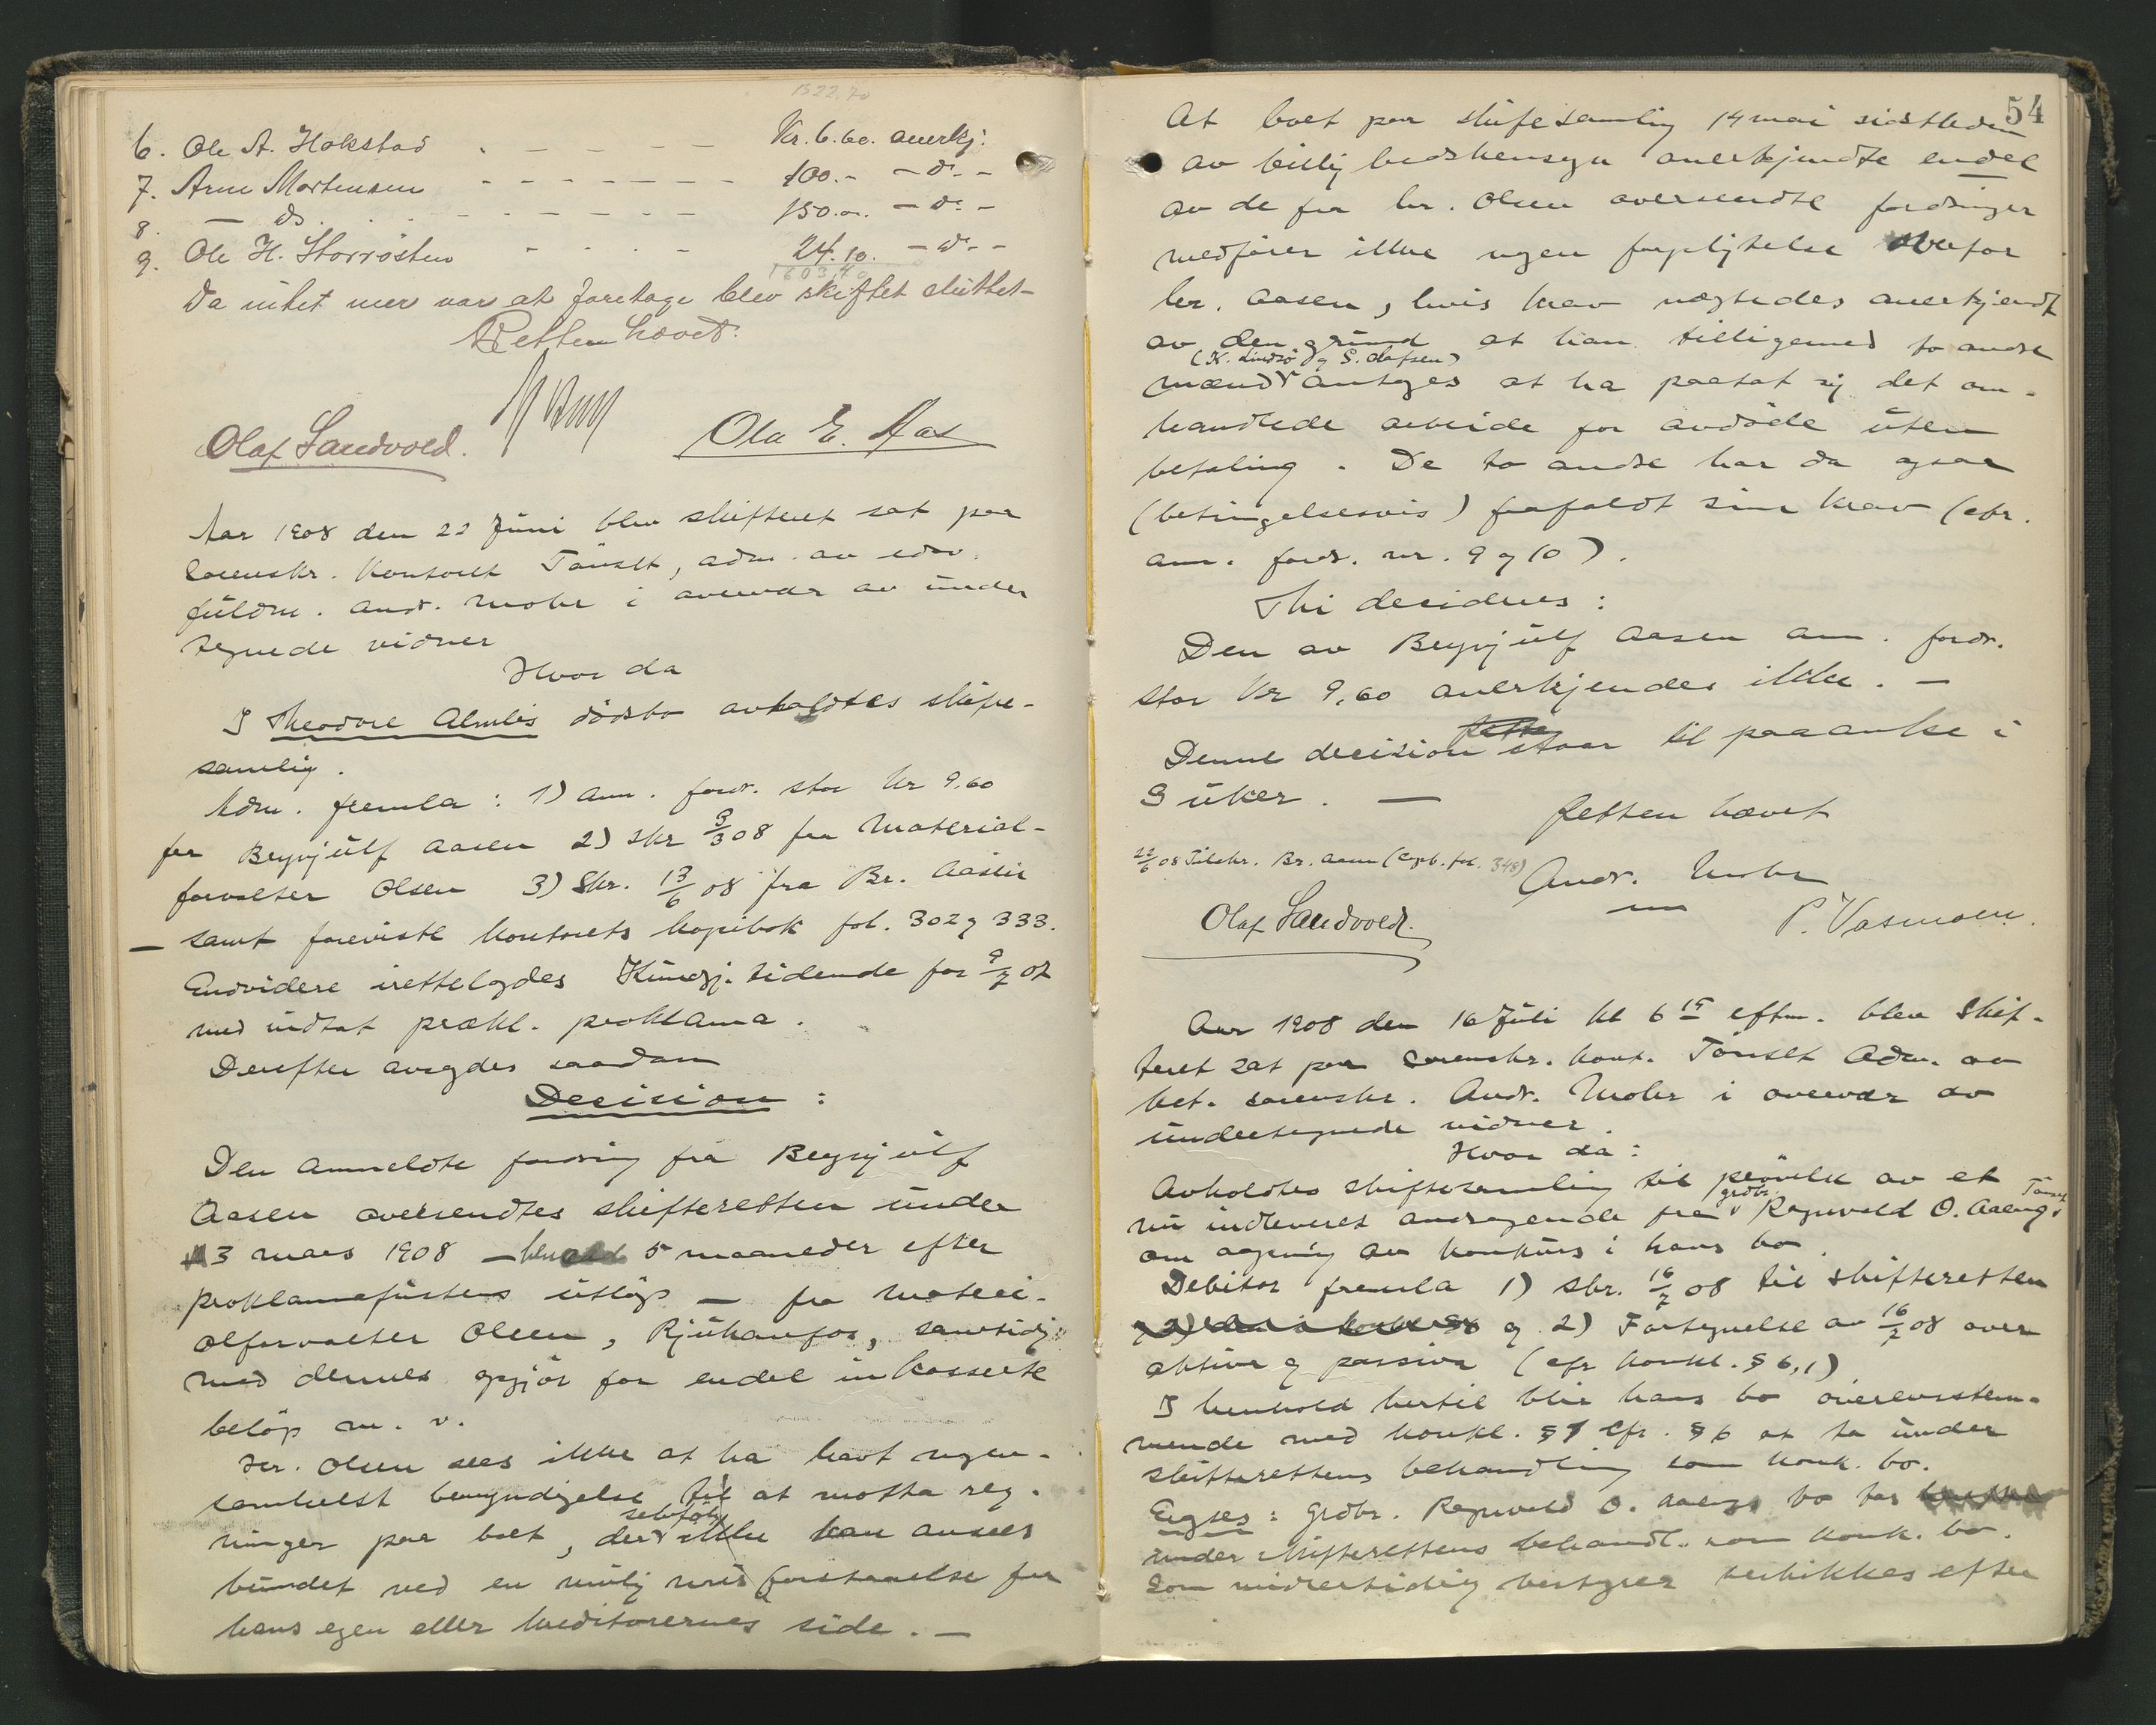 1522.70
6. Ole A. Hokstad . - - - - - Kr. 6.60. anerkj:
7. Arne Mortensen - - - - - - - 100.- - do. -
8. — do. - - - - - - 150.00. - do. -
9. Ole H. Storrösten - - - - 24.10. - do. -
1603,40
Da intet mer var at foretage blev skiftet sluttet -
Retten hævet:
Olaf Sandvold.
Ola E. Aas
Aar 1908 den 22 Juni blev skifteret sat paa
sorenskr. kontoret Tönset, adm. av edsv.
fuldm. Andr. Mohr i overvær av under
tegnede vidner
Hvor da
I Theodore Almlis dödsbo avholdtes skifte-
samling.
Adm. fremla: 1) Anm. fordr. stor Kr 9,60
fra Brynjulf Aasen 2) Skr 3/3 08 fra Material-
forvalter Olsen 3) Skr. 13/6 08 fra Br. Aasen
— samt foreviste kontorets kopibok fol. 302 og 333.
Endvidere irettelagdes Kundgj. tidende for 9/7 07
med indtat prækl. proklama.
Derefter avsagdes saadan
Decision:
Den anmeldte fordring fra Brynjulf
Aasen oversendtes skifteretten under
3 mars 1908 — 5 maaneder efter
proklamafristens utlöp — fra materi-
alforvalter Olsen, Rjukanfos, samtidig
med dennes opgjör for endel inkasserte
belöp m. v.
Hr. Olsen sees ikke at ha havt nogen-
somhelst bemyndigelse til at motta reg-
ninger paa boet, der selvfölg. ikke kan ansees
bundet ved en mulig misforstaaelse fra
hans egen eller kreditorernes side. —
54
At boet paa skiftesamling 14 mai sidstleden
av billighedshensyn anerkjendte endel
av de fra hr. Olsen oversendte fordringer
medförer ikke nogen forpligtelse overfor
hr. Aasen, hvis krav nægtedes anerkjendt
av den grund at han tilligemed to andre
(K. Lindsö og S. Olafsen)
mænd antages at ha paatat sig det om-
handlede arbeide for avdöde uten
betaling. De to andre har da ogsaa
(betingelsesvis) frafaldt sine krav (cfr.
anm. fordr. nr. 9 og 10).
Thi decideres:
Den av Brynjulf Aasen anm. fordr.
stor Kr 9,60 anerkjendes ikke. —
Denne decision staar til paaanke i
3 uker. —
Retten hævet
22/6 08 Tilskr. Br. Aasen (Copb. fol. 348)
Andr. Mohr
Olaf Sandvold.
P. Vasmoen.
Aar 1908 den 16 Juli kl 6 15 eftm. blev skif-
teret sat paa sorenskr. kont. Tönset Adm. av
bet. sorenskr. Andr. Mohr i overvær av
undertegnede vidner.
Hvor da:
Avholdtes skiftesamling til prövelse av et
nu indleveret andragende fra grdbr. Ragnvald O. Aaeng, Tönset
om aapning av konkurs i hans bo.
Debitor fremla 1) skr. 16/7 08 til skifteretten
og 2) Fortegnelse av 16/7 08 over
aktiva og passiva (cfr konkl. § 6,1)
I henhold hertil blir hans bo overensstem-
mende med konkl. § 1 cfr. § 6 at ta under
skifterettens behandling som konk. bo.
Eragtes: Grdbr. Ragnvald O. Aaengs bo tas
under skifterettens behandl. som konk. bo.
Som midlertidig bestyrer beskikkes efter